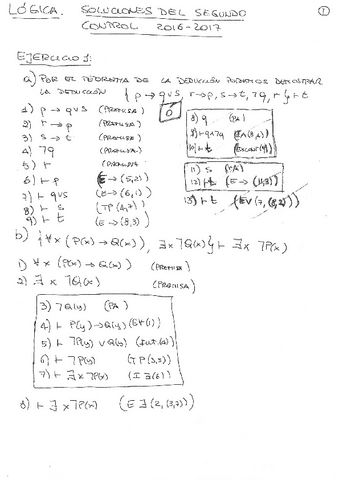 LÓGICA. SOLUCIONES DEL SEGUNDO
CONTROL 2016-2017
1
EJERCICIO 1:
a) POR EL TEOREMA DE LA DEDUCCIÓN PODEMOS DEMOSTRAR
LA DEDUCCIÓN { p → q∨s, r→p, s→t, ¬q, r } ⊢ t
1) p → q∨s (PREMISA)
2) r → p (PREMISA)
3) s → t (PREMISA)
4) ¬q (PREMISA)
5) r (PREMISA)
6) ⊢ p (E → (5,2))
7) ⊢ q∨s (E → (6,1))
8) ⊢ s (TP (4,7))
9) ⊢ t (E → (8,3))
Ó
8) q (PA)
9) ⊢ q∧¬q
10) ⊢ t
11) s (PA)
12) ⊢ t (E → (11,3))
13) ⊢ t
b) { ∀x (P(x) → Q(x)), ∃x ¬Q(x) } ⊢ ∃x ¬P(x)
1) ∀x (P(x) → Q(x)) (PREMISA)
2) ∃x ¬Q(x) (PREMISA)
3) ¬Q(y) (PA)
4) ⊢ P(y) → Q(y) (E∀(1))
5) ⊢ ¬P(y) ∨ Q(y)
6) ⊢ ¬P(y) (TP (3,5))
7) ⊢ ∃x ¬P(x) (I∃(6))
8) ⊢ ∃x ¬P(x) (E∃(2,(3,7)))